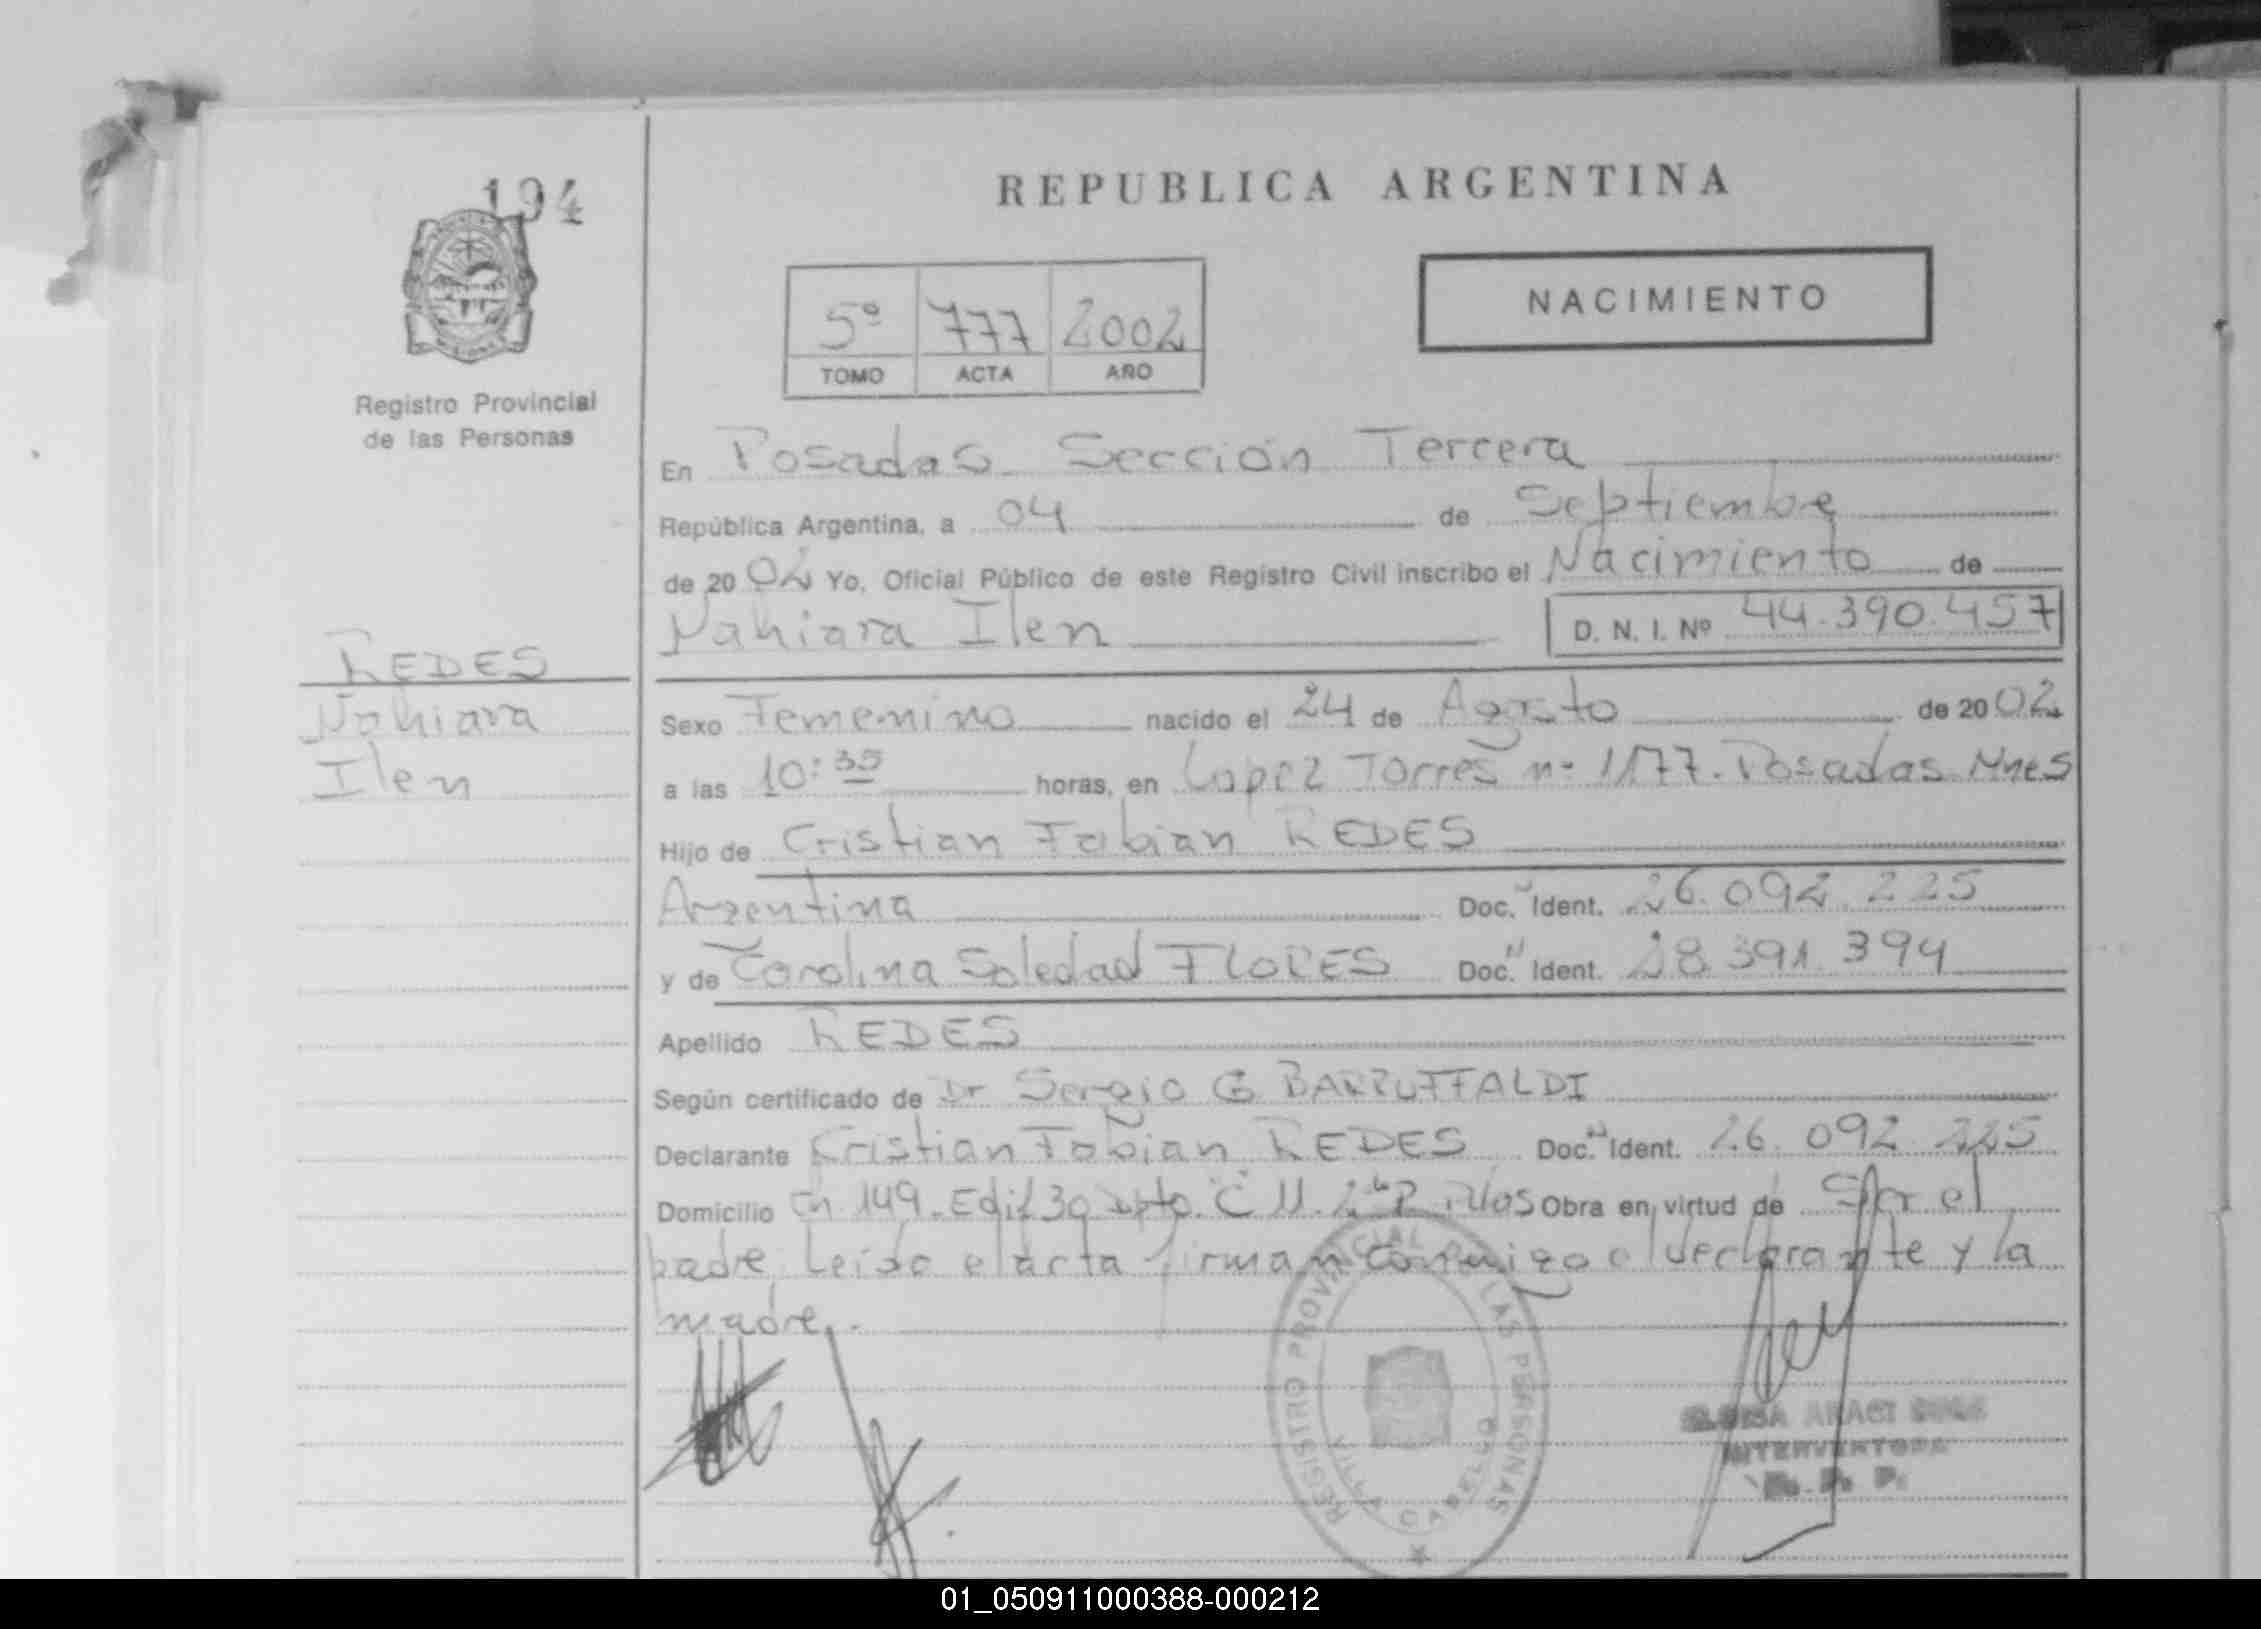 194
REPUBLICA ARGENTINA
NACIMIENTO
5º 777 2002
TOMO ACTA AÑO
Registro Provincial
de las Personas
En Posadas Sección Tercera
República Argentina, a 04 de Septiembre
de 2002 Yo, Oficial Público de este Registro Civil inscribo el Nacimiento de
Nahiara Ilen D. N. I. Nº 44.390.457
REDES
Nahiara
Ilen
Sexo Femenino nacido el 24 de Agosto de 2002
a las 10:35 horas, en Lopez Torres nº 1177. Posadas Mnes
Hijo de Cristian Fabian REDES
Argentina Doc. Ident. 26.092.225
y de Carolina Soledad FLORES Doc. Ident. 28.391.394
Apellido REDES
Según certificado de Dr Sergio G BARRUFFALDI
Declarante Cristian Fabian REDES Doc. Ident. 26.092.225
Domicilio Ch 149. Edif 30 Dpto. "C" Obra en virtud de Ser el
padre. Leido el acta firman conmigo el declarante y la
madre.-
REGISTRO PROVINCIAL DE LAS PERSONAS
VILLA CABELLO
INTERVENTORA
R. P. P.
01_050911000388-000212